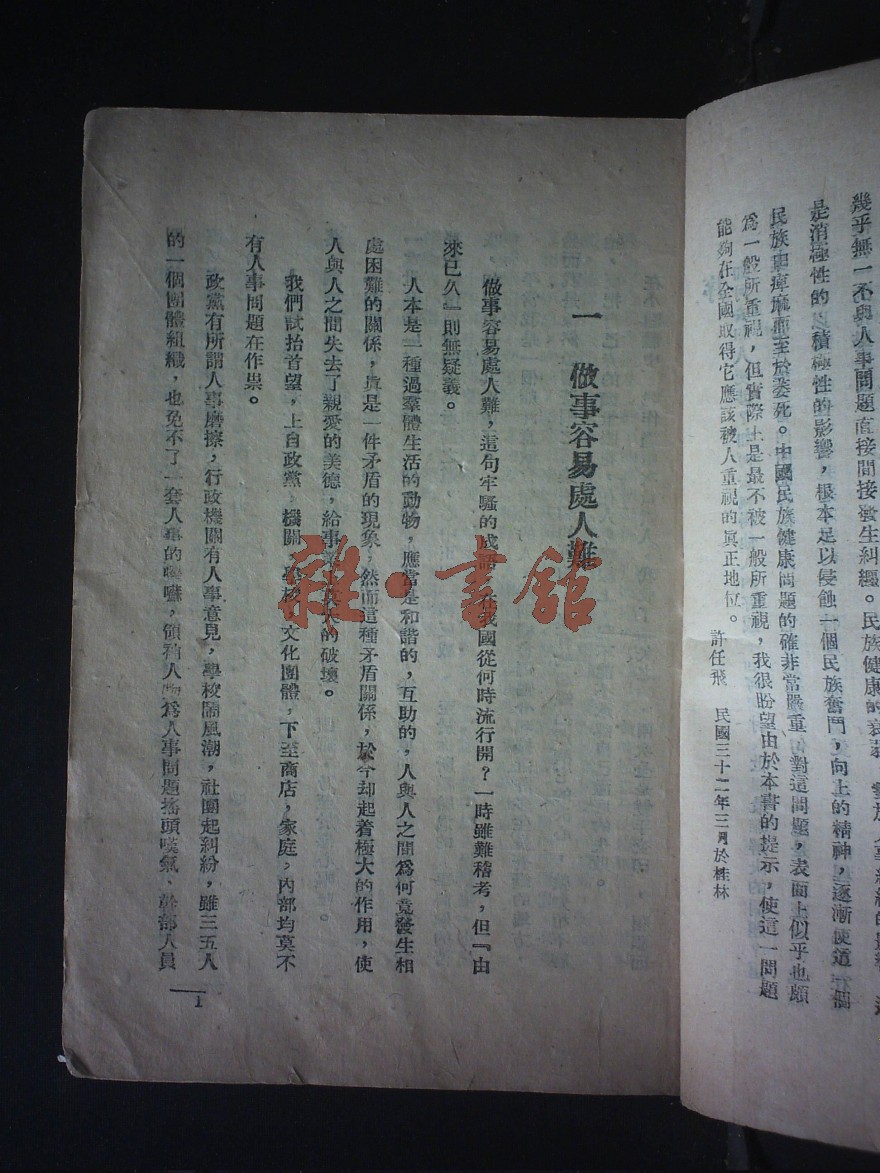 幾乎無一不與人事問題直接間接發生糾纒。民族健康的衰弱
是消極性的或積極性的影響，根本足以侵蝕一個民族奮鬥，向上的精神，逐漸使這一個
民族由痺痲而至於萎死。中國民族健康問題的確非常嚴重，對這問題，表面上似乎也頗
爲一般所重視，但實際上是最不被一般所重視，我很盼望由於本書的提示，使這一問題
能夠在全國取得它應該被人重視的眞正地位。
許任飛　民國三十二年三月於桂林
一　做事容易處人難
做事容易處人難，這句牢騷的成語，在我國從何時流行開？一時雖難稽考，但『由
來已久』則無疑義。
人本是一種過羣體生活的動物，應當是和諧的，互助的，人與人之間爲何竟發生相
處困難的關係，眞是一件矛盾的現象，然而這種矛盾關係，於今却起着極大的作用，使
人與人之間失去了親愛的美德，給事 大的破壞。
我們試抬首望，上自政黨，機關，學校，文化團體，下至商店，家庭，內部均莫不
有人事問題在作祟。
政黨有所謂人事磨擦，行政機關有人事意見，學校鬧風潮，社團起糾紛，雖三五人
的一個團體組織，也免不了一套人事的嚕囌，領袖人物爲人事問題搖頭嘆氣、幹部人員
1
雜·書館